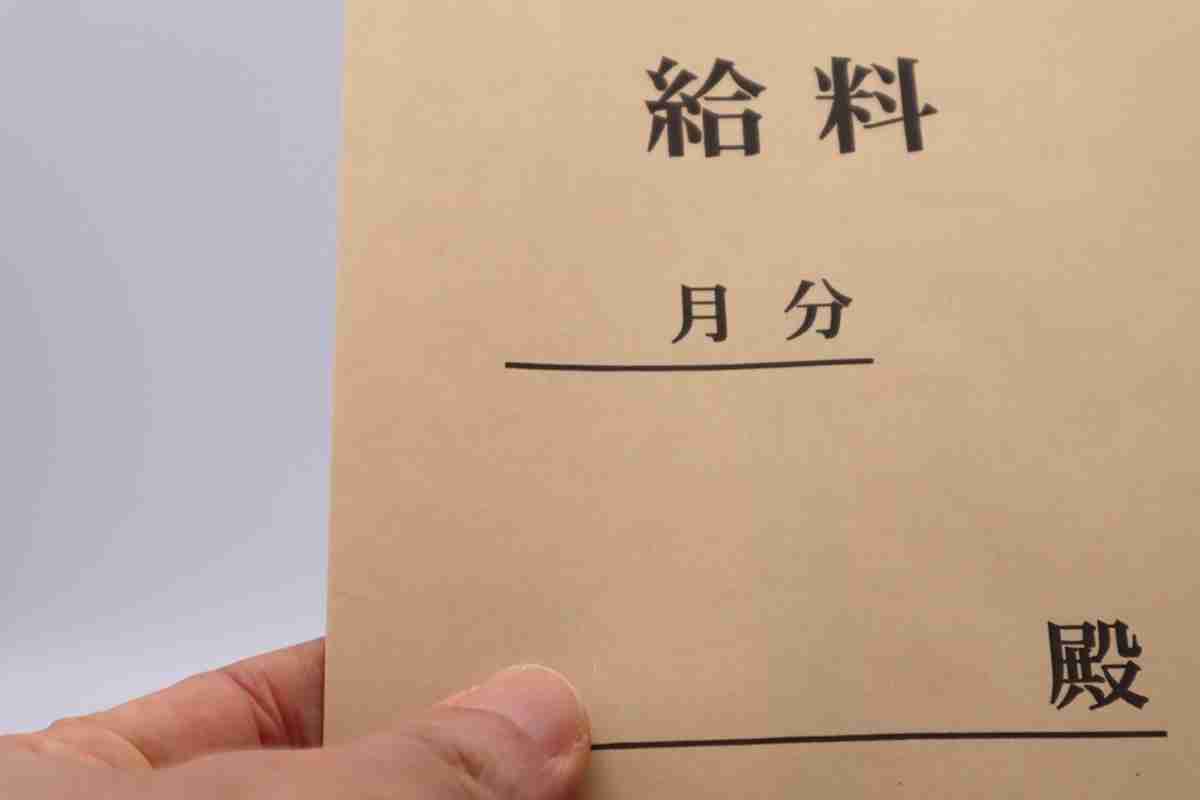 給料
月分
殿